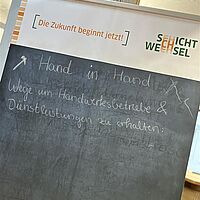 [Die Zukunft beginnt jetzt!]
SCHICHT
WECHSEL
Hand in Hand
Wege um Handwerksbetriebe &
Dienstleistungen zu erhalten: